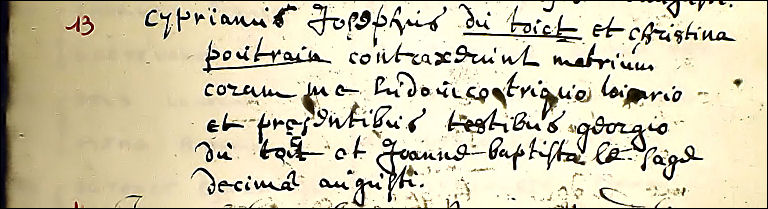 13 Cyprianus Josephus du toict et christina
poutrain contraxerunt matrium
coram me ludovico triquio vicario
et presentibus testibus georgio
du toict et Joanne baptista le sage
decima augusti.